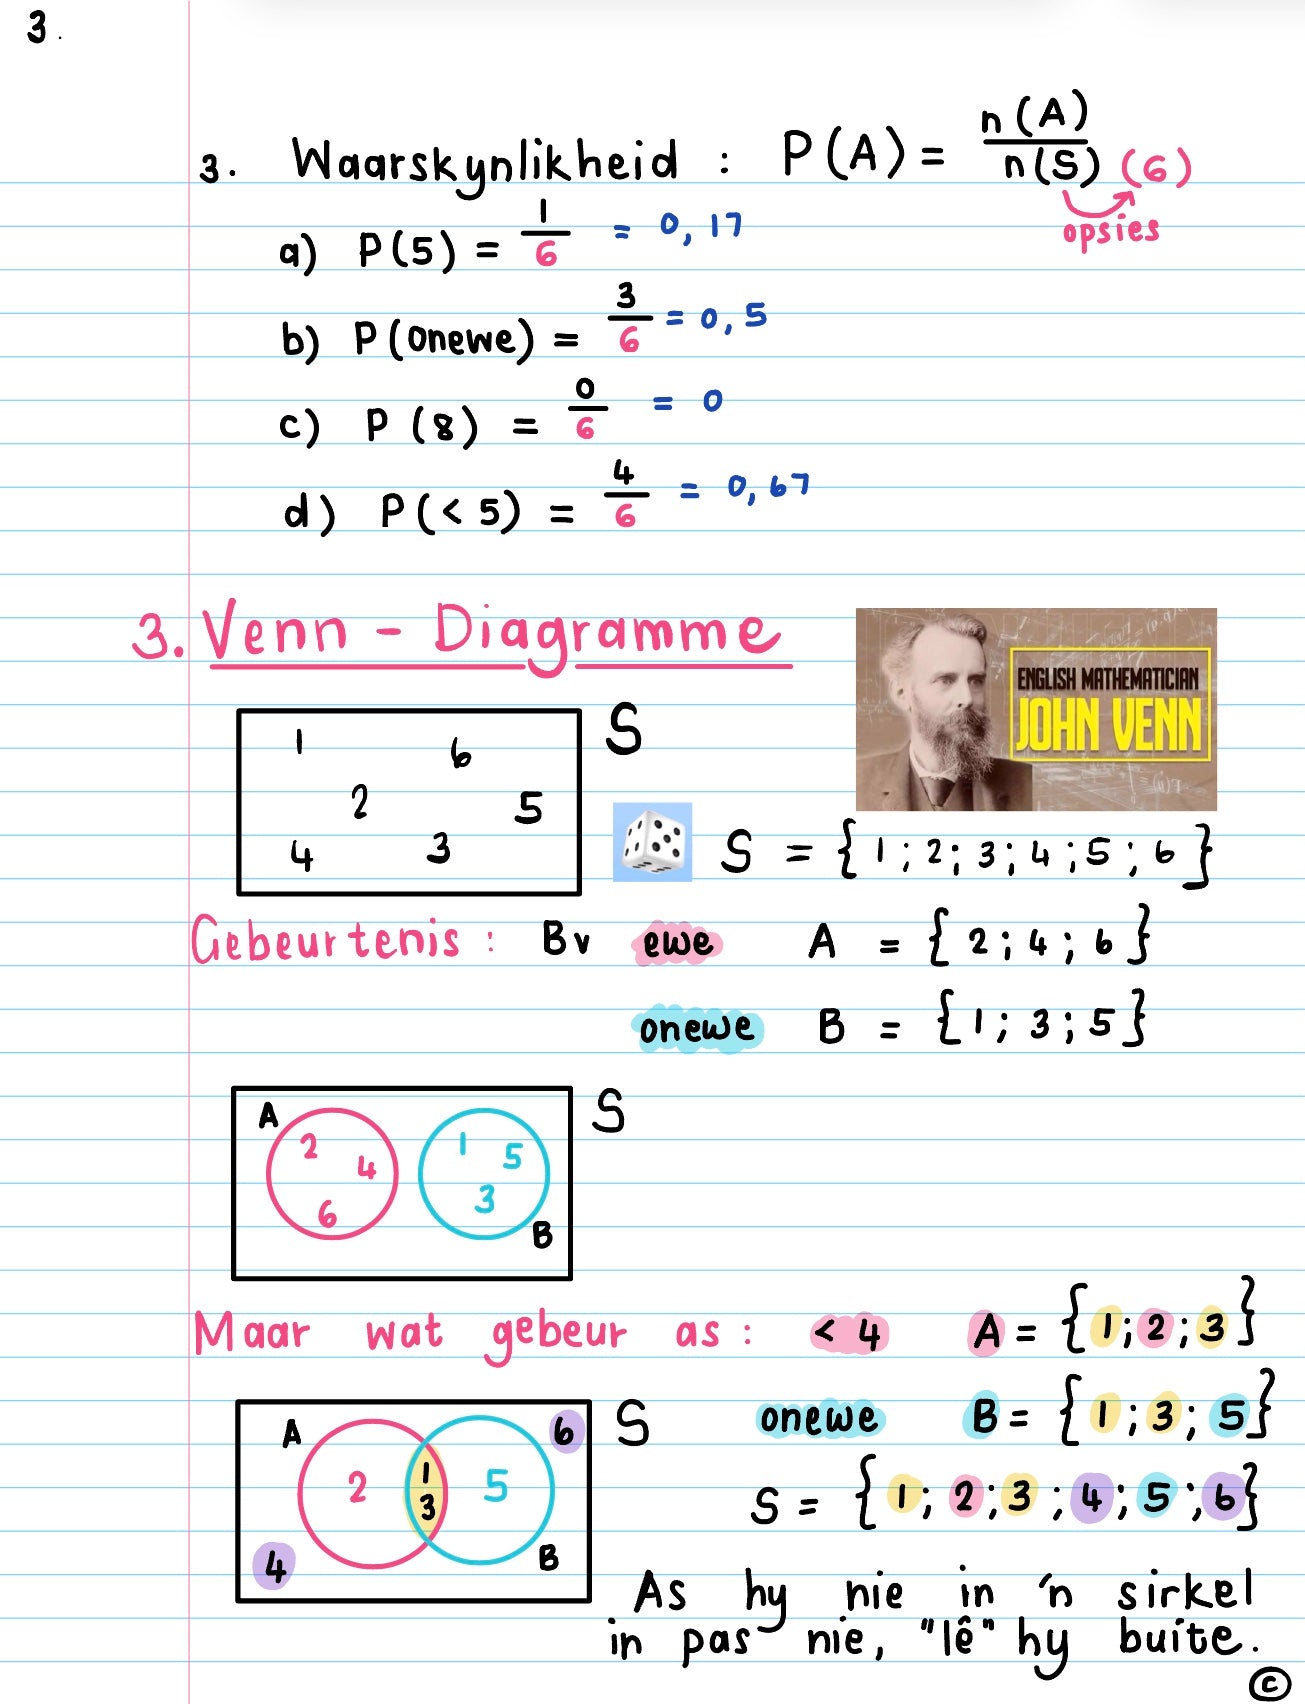 3.
3. Waarskynlikheid : P(A) = n(A) / n(S) (6)
opsies
a) P(5) = 1/6 = 0,17
b) P(onewe) = 3/6 = 0,5
c) P(8) = 0/6 = 0
d) P(< 5) = 4/6 = 0,67
3. Venn - Diagramme
ENGLISH MATHEMATICIAN
JOHN VENN
S
1 6
2 5
4 3
S = {1; 2; 3; 4; 5; 6}
Gebeurtenis : Bv ewe A = {2; 4; 6}
onewe B = {1; 3; 5}
A S
2 4 6
1 5 3
B
Maar wat gebeur as : < 4 A = {1; 2; 3}
onewe B = {1; 3; 5}
A 6 S
2 1 3 5
4 B
S = {1; 2; 3; 4; 5; 6}
As hy nie in 'n sirkel
in pas nie, "lê" hy buite.
©